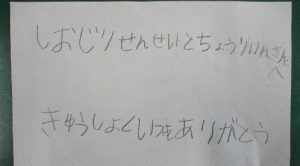 しおじりせんせいとちょうりいんさんへ
きゅうしょくいつもありがとう